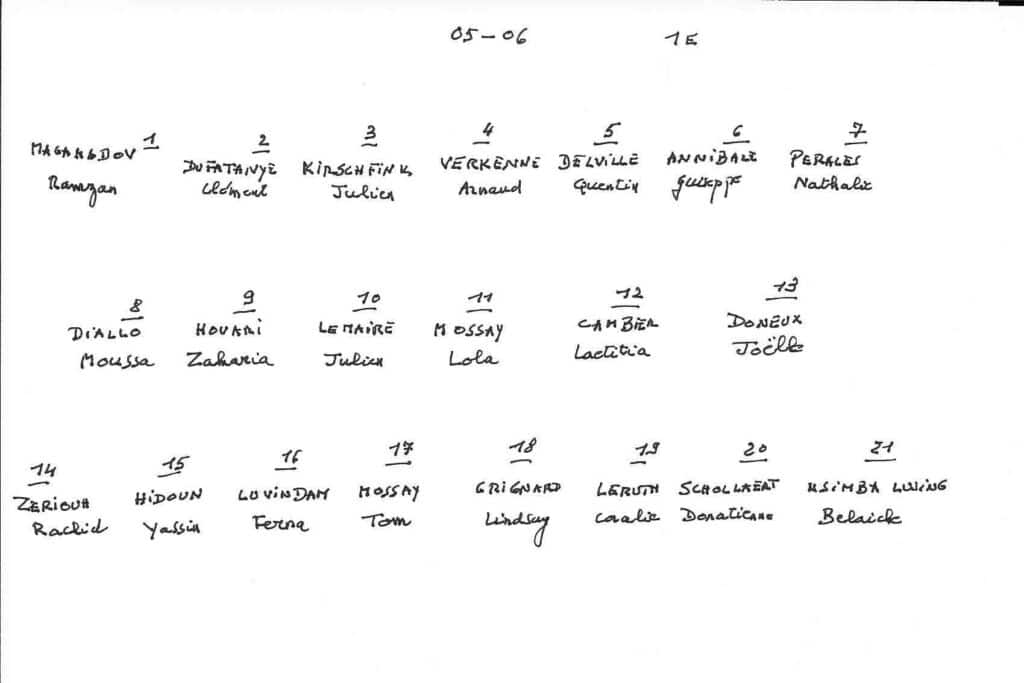 05-06 1E
1 2 3 4 5 6 7
MAGAMADOV DUFATANYE KIRSCHFINK VERKENNE DELVILLE ANNIBALE PERALES
Ramzan Clément Julien Arnaud Quentin Guiseppe Nathalie
8 9 10 11 12 13
DIALLO HOUARI LEMAIRE MOSSAY CAMBIER DONEUX
Moussa Zakaria Julien Lola Laetitia Joëlle
14 15 16 17 18 19 20 21
ZERIOUH HIDOUN LUVINDAM MOSSAY GRIGNARD LERUTH SCHOLLAERT
Rachid Yassin Tom Lindsay Coralie Donatienne Belaick